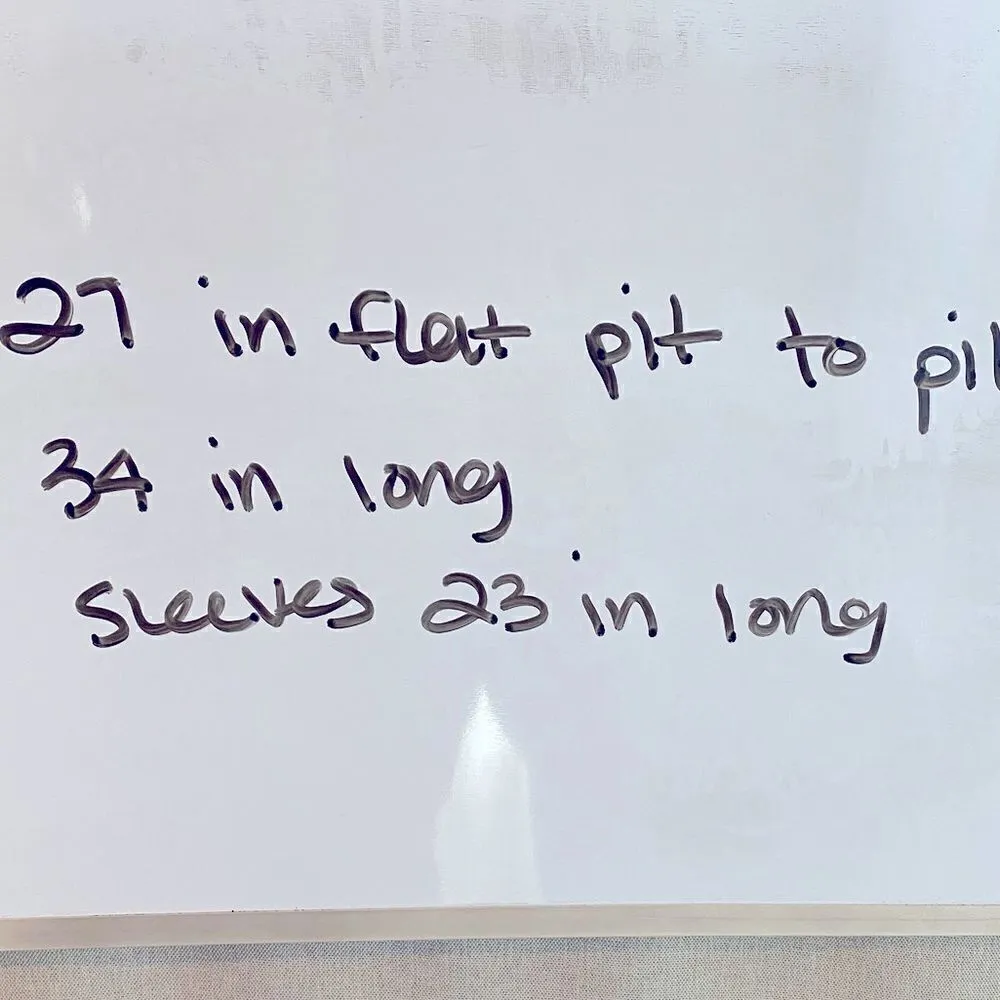 27 in flat pit to pit
34 in long
sleeves 23 in long